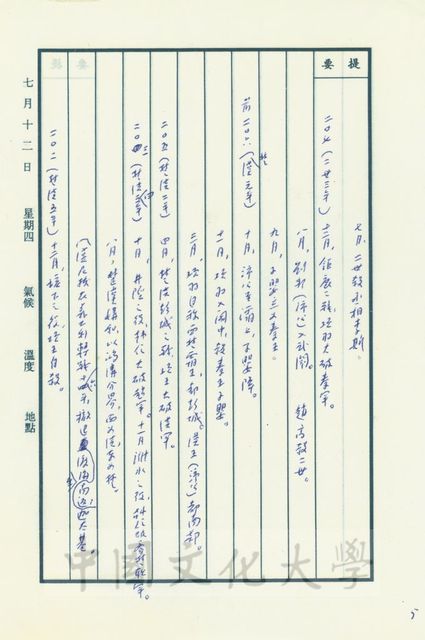 提要
七月，二世殺丞相李斯。
二〇七（二世三年）十二月，鉅鹿之戰，項羽大破秦軍。
八月，劉邦（沛公）入武關。 趙高殺二世。
九月，子嬰立為秦王。
前二〇六（漢元年）十月，沛公至霸上，子嬰降。
十二月，項羽入關中，殺秦王子嬰。
二月，項羽自稱西楚霸王，都彭城。漢王（沛公）都南鄭。
二〇五（楚漢二年）四月，楚漢彭城之戰，項王大破漢軍。
二〇四（楚漢三年）十月，井陘之役，韓信大破趙軍。十一月濰水之役，韓信破齊楚聯軍。
八月，楚漢媾和，以鴻溝分界，西為漢東為楚。
二〇二（楚漢五年）十二月，垓下之役，項王自殺。
七月十二日 星期四 氣候 溫度 地點
中國文化大學
5